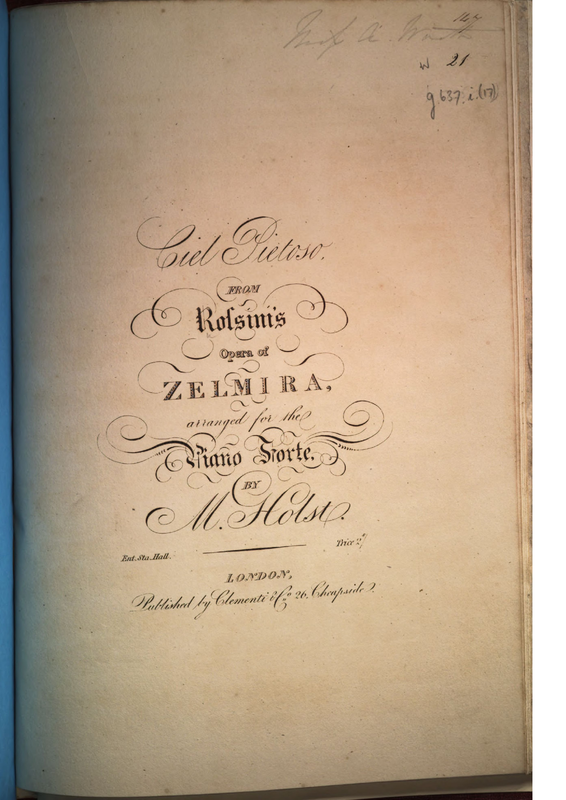 W 21
g.637.i.(17)
Ciel Pietoso.
FROM
Roſsini's
Opera of
ZELMIRA,
arranged for the
Piano Forte.
BY
M. Holst.
Ent. Sta. Hall. Price 2/
LONDON,
Published by Clementi & Co. 26, Cheapside.